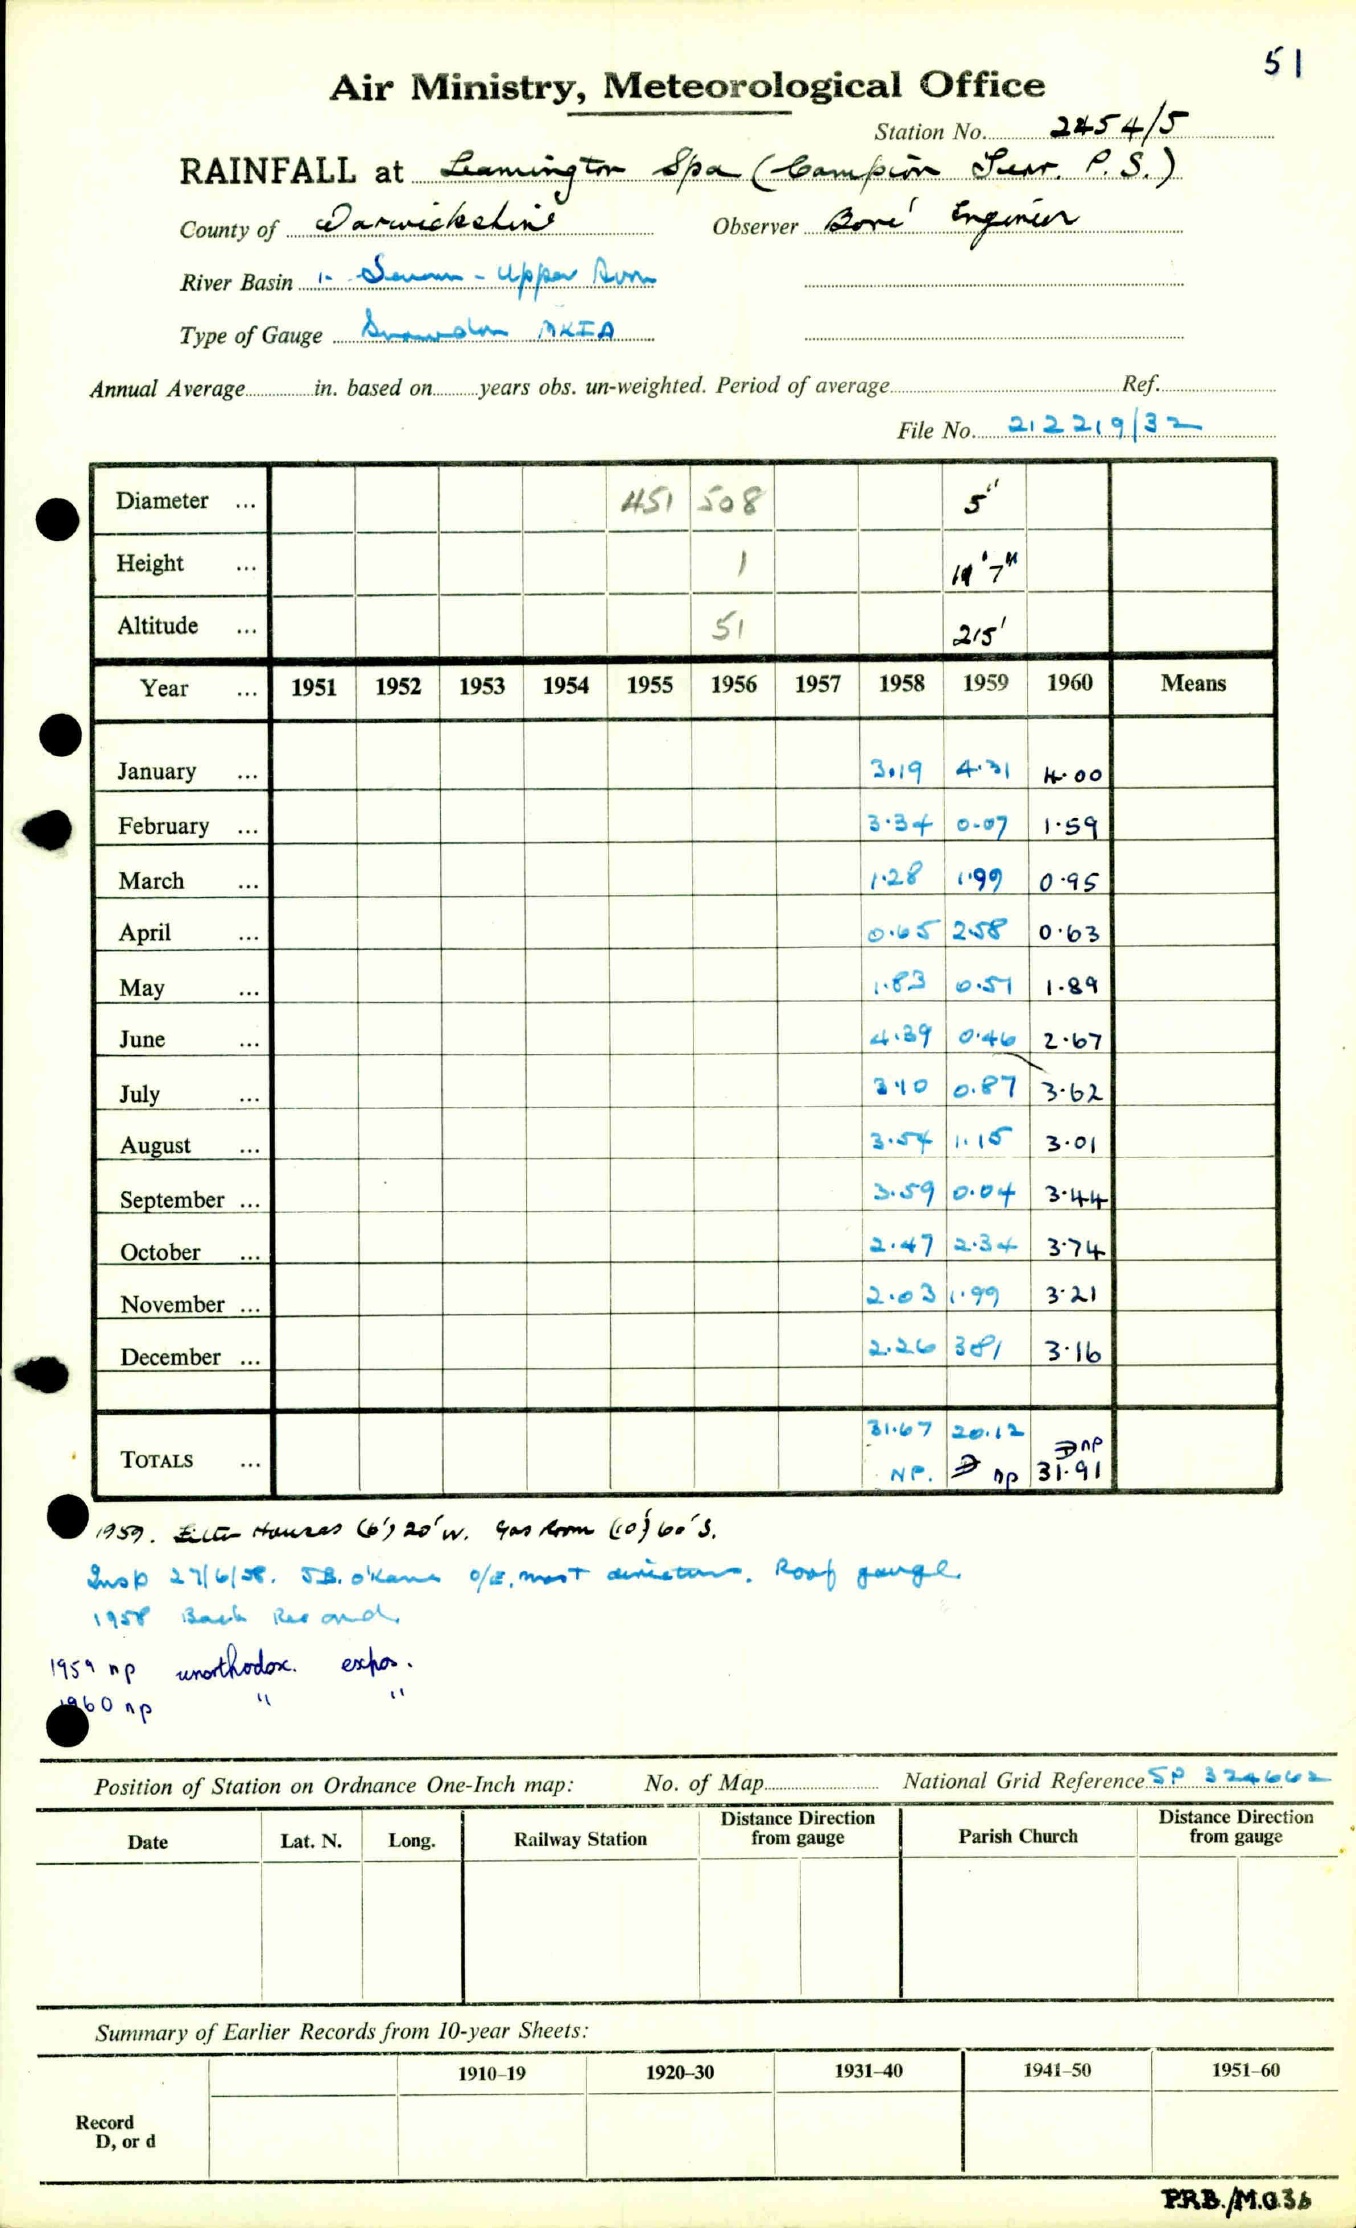 51
Air Ministry, Meteorological Office
Station No. 2454/5
RAINFALL at Leamington Spa (Campion Terr. P.S.)
County of Warwickshire Observer Boro' Engineer
River Basin 1- Severn - Upper Avon
Type of Gauge Snowdon MKIA
Annual Average in. based on years obs. un-weighted. Period of average Ref.
File No. 212219/32
Diameter ... 451 508 5"
Height ... 1 11'7"
Altitude ... 51 215'
Year ... 1951 1952 1953 1954 1955 1956 1957 1958 1959 1960 Means
January ... 3.19 4.31 4.00
February ... 3.34 0.07 1.59
March ... 1.28 1.99 0.95
April ... 0.65 2.58 0.63
May ... 1.83 0.51 1.89
June ... 4.39 0.46 2.67
July ... 3.10 0.87 3.62
August ... 3.54 1.15 3.01
September ... 3.59 0.04 3.44
October ... 2.47 2.34 3.74
November ... 2.03 1.99 3.21
December ... 2.26 3.81 3.16
31.67 20.12 np
TOTALS ... NP. np 31.91
1959. Filter Houses (6') 20'W. Gas Room (10') 60'S.
Insp 27/6/58. J.B. O'Kane O/E, most directions. Roof gauge.
1958 Back Record.
1959 np unorthodox. expos.
1960 np " "
Position of Station on Ordnance One-Inch map: No. of Map National Grid Reference SP 324662
Date Lat. N. Long. Railway Station Distance Direction from gauge Parish Church Distance Direction from gauge
Summary of Earlier Records from 10-year Sheets:
1910–19 1920–30 1931–40 1941–50 1951–60
Record
D, or d
P.R.B./M.O.36